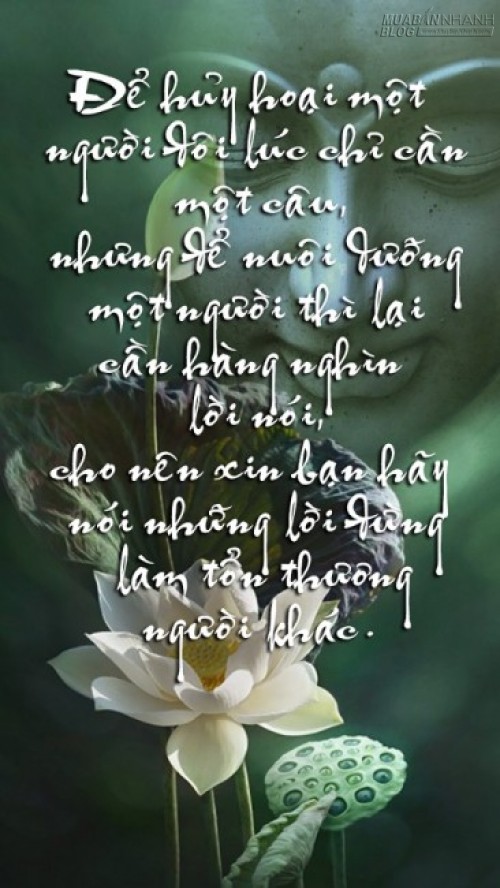 MUABÁNNHANH
BLOG
Để hủy hoại một
người đôi lúc chỉ cần
một câu,
nhưng để nuôi dưỡng
một người thì lại
cần hàng nghìn
lời nói,
cho nên xin bạn hãy
nói những lời đừng
làm tổn thương
người khác.